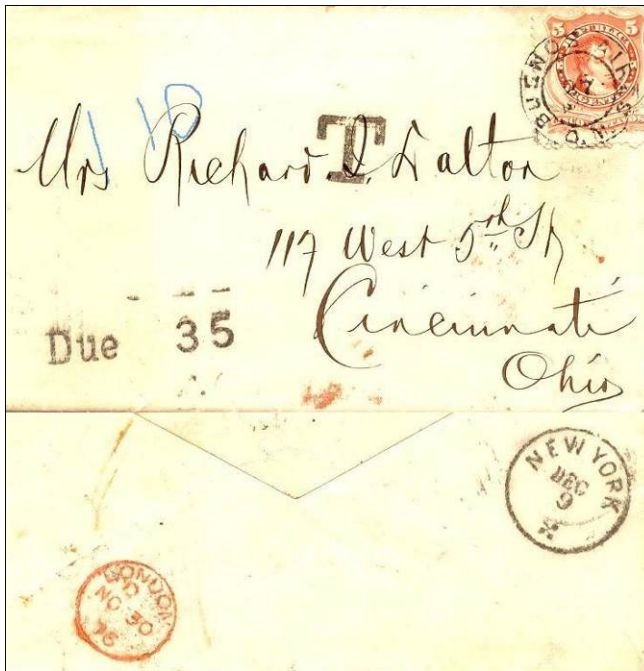 5 5
BUENOS AIRES
1 10
T
Mrs Richard I. Dalton
117 West 5th St
Cincinnati
Ohio
Due 35
NEW YORK
DEC
9
LONDON
D
NO 30
76